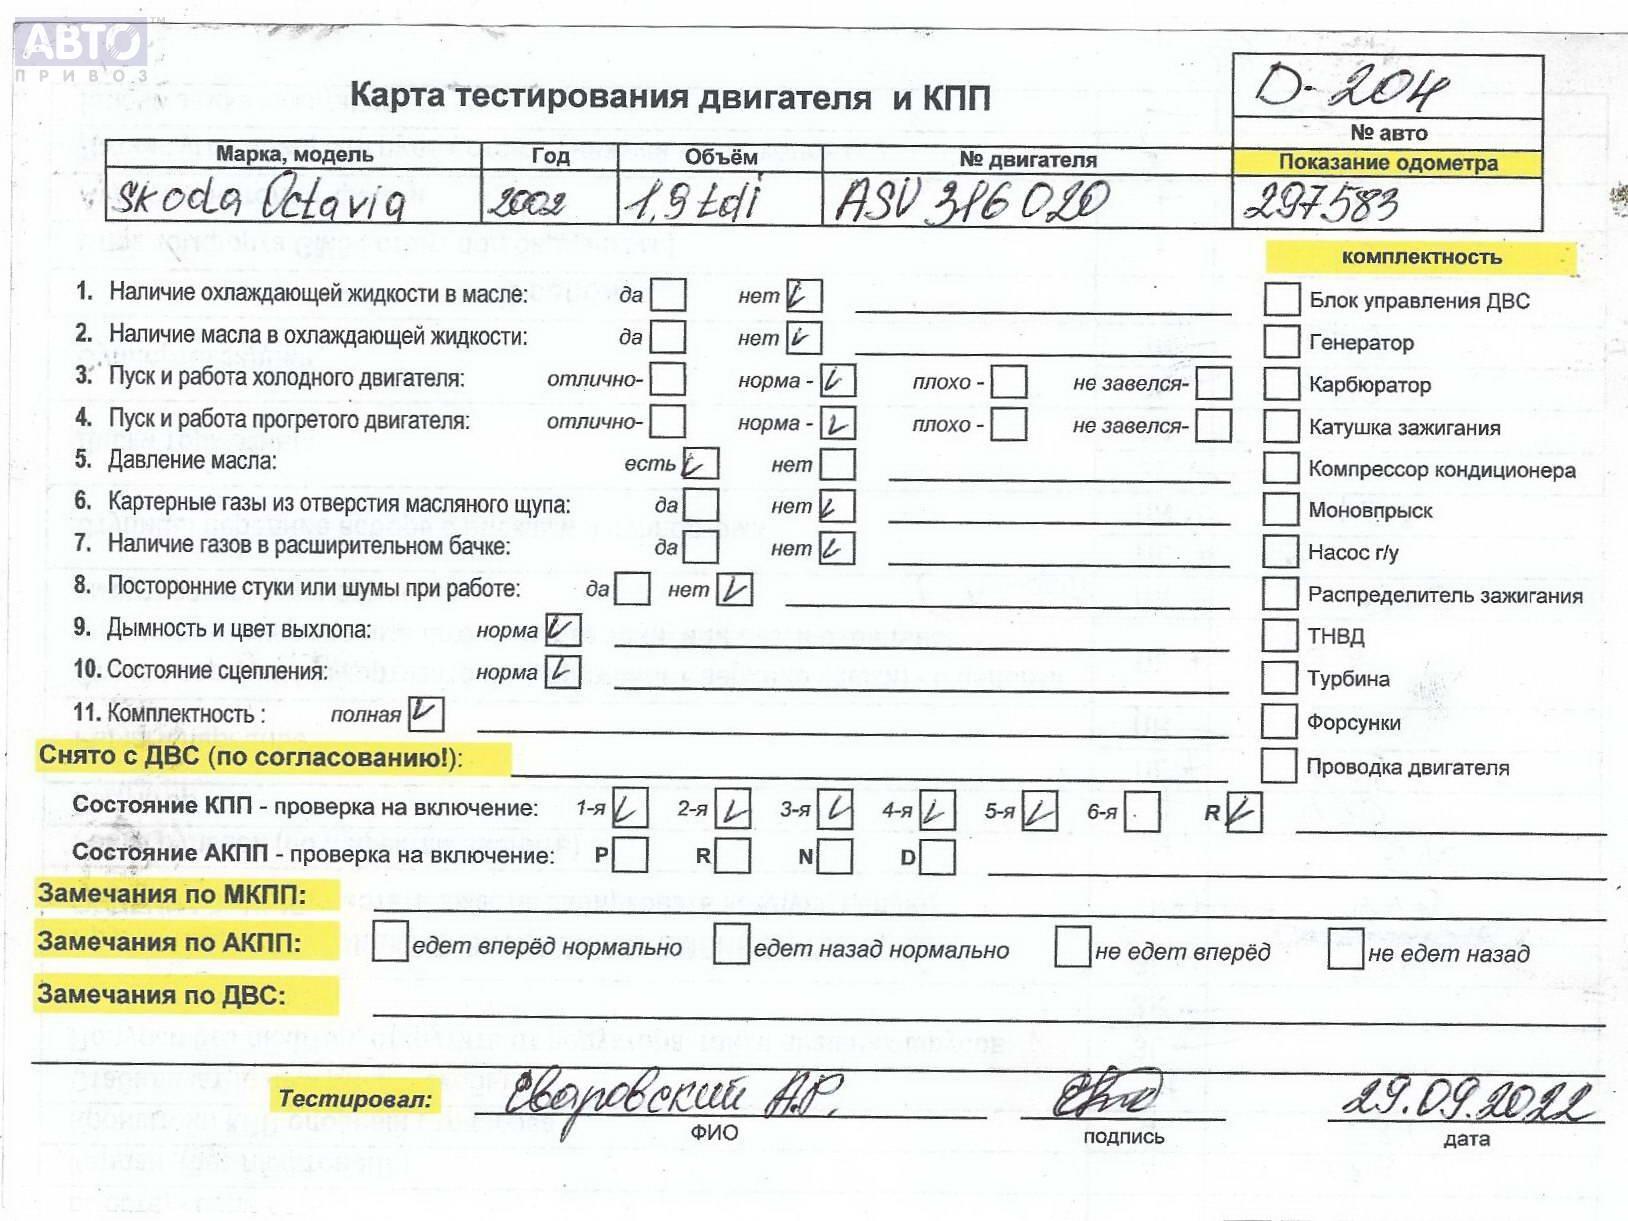 АВТО
ПРИВОЗ
Карта тестирования двигателя и КПП
D-204
№ авто
Марка, модель Год Объём № двигателя Показание одометра
Skoda Octavia 2002 1,9 tdi ASV 316020 297583
комплектность
1. Наличие охлаждающей жидкости в масле: да нет V
Блок управления ДВС
2. Наличие масла в охлаждающей жидкости: да нет V
Генератор
3. Пуск и работа холодного двигателя: отлично- норма - V плохо - не завелся-
Карбюратор
4. Пуск и работа прогретого двигателя: отлично- норма - V плохо - не завелся-
Катушка зажигания
5. Давление масла: есть V нет
Компрессор кондиционера
6. Картерные газы из отверстия масляного щупа: да нет V
Моновпрыск
7. Наличие газов в расширительном бачке: да нет V
Насос г/у
8. Посторонние стуки или шумы при работе: да нет V
Распределитель зажигания
9. Дымность и цвет выхлопа: норма V
ТНВД
10. Состояние сцепления: норма V
Турбина
11. Комплектность : полная V
Форсунки
Снято с ДВС (по согласованию!):
Проводка двигателя
Состояние КПП - проверка на включение: 1-я V 2-я V 3-я V 4-я V 5-я V 6-я R V
Состояние АКПП - проверка на включение: P R N D
Замечания по МКПП:
Замечания по АКПП: едет вперёд нормально едет назад нормально не едет вперёд не едет назад
Замечания по ДВС:
Тестировал: Сваровский А.Р. 29.09.2022
ФИО подпись дата